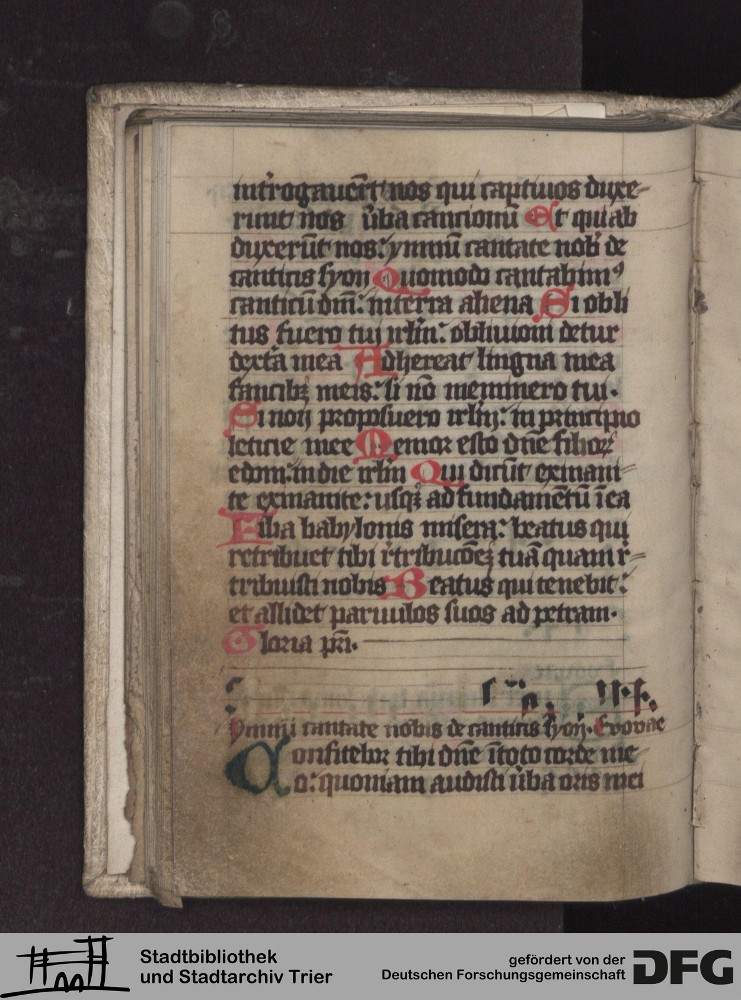 int̉rogauer̄t nos qui captiuos duxe-
runt nos ủba cancionū Et qui ab
duxerūt nos: ymnū cantate nob̉ de
canticis syon Quomodo cantabimꝰ
canticū dn̄i: in terra aliena Si obli
tus fuero tui irlm̄: obliuioni detur
dext̉a mea Adhereat lingua mea
faucibꝫ meis: si nō meminero tui.
Si non proposuero irlm̄: in principio
leticie mee Memor esto dn̄e filioꝝ
edom: in die irlm̄ Qui dicūt exinani-
te exinanite: usqꝫ ad fundamētū ī ea
Filia babylonis misera: beatus qui
retribuet tibi r̉tribucōeꝫ tuā quam r̉-
tribuisti nobis Beatus qui tenebit:
et allidet paruulos suos ad petram.
Gloria pr̄i.
Ymnū cantate nobis de canticis syon. Evovae
Confitebor tibi dn̄e ī toto corde me
o: quoniam audisti ủba oris mei
Stadtbibliothek
und Stadtarchiv Trier
gefördert von der
Deutschen Forschungsgemeinschaft
DFG